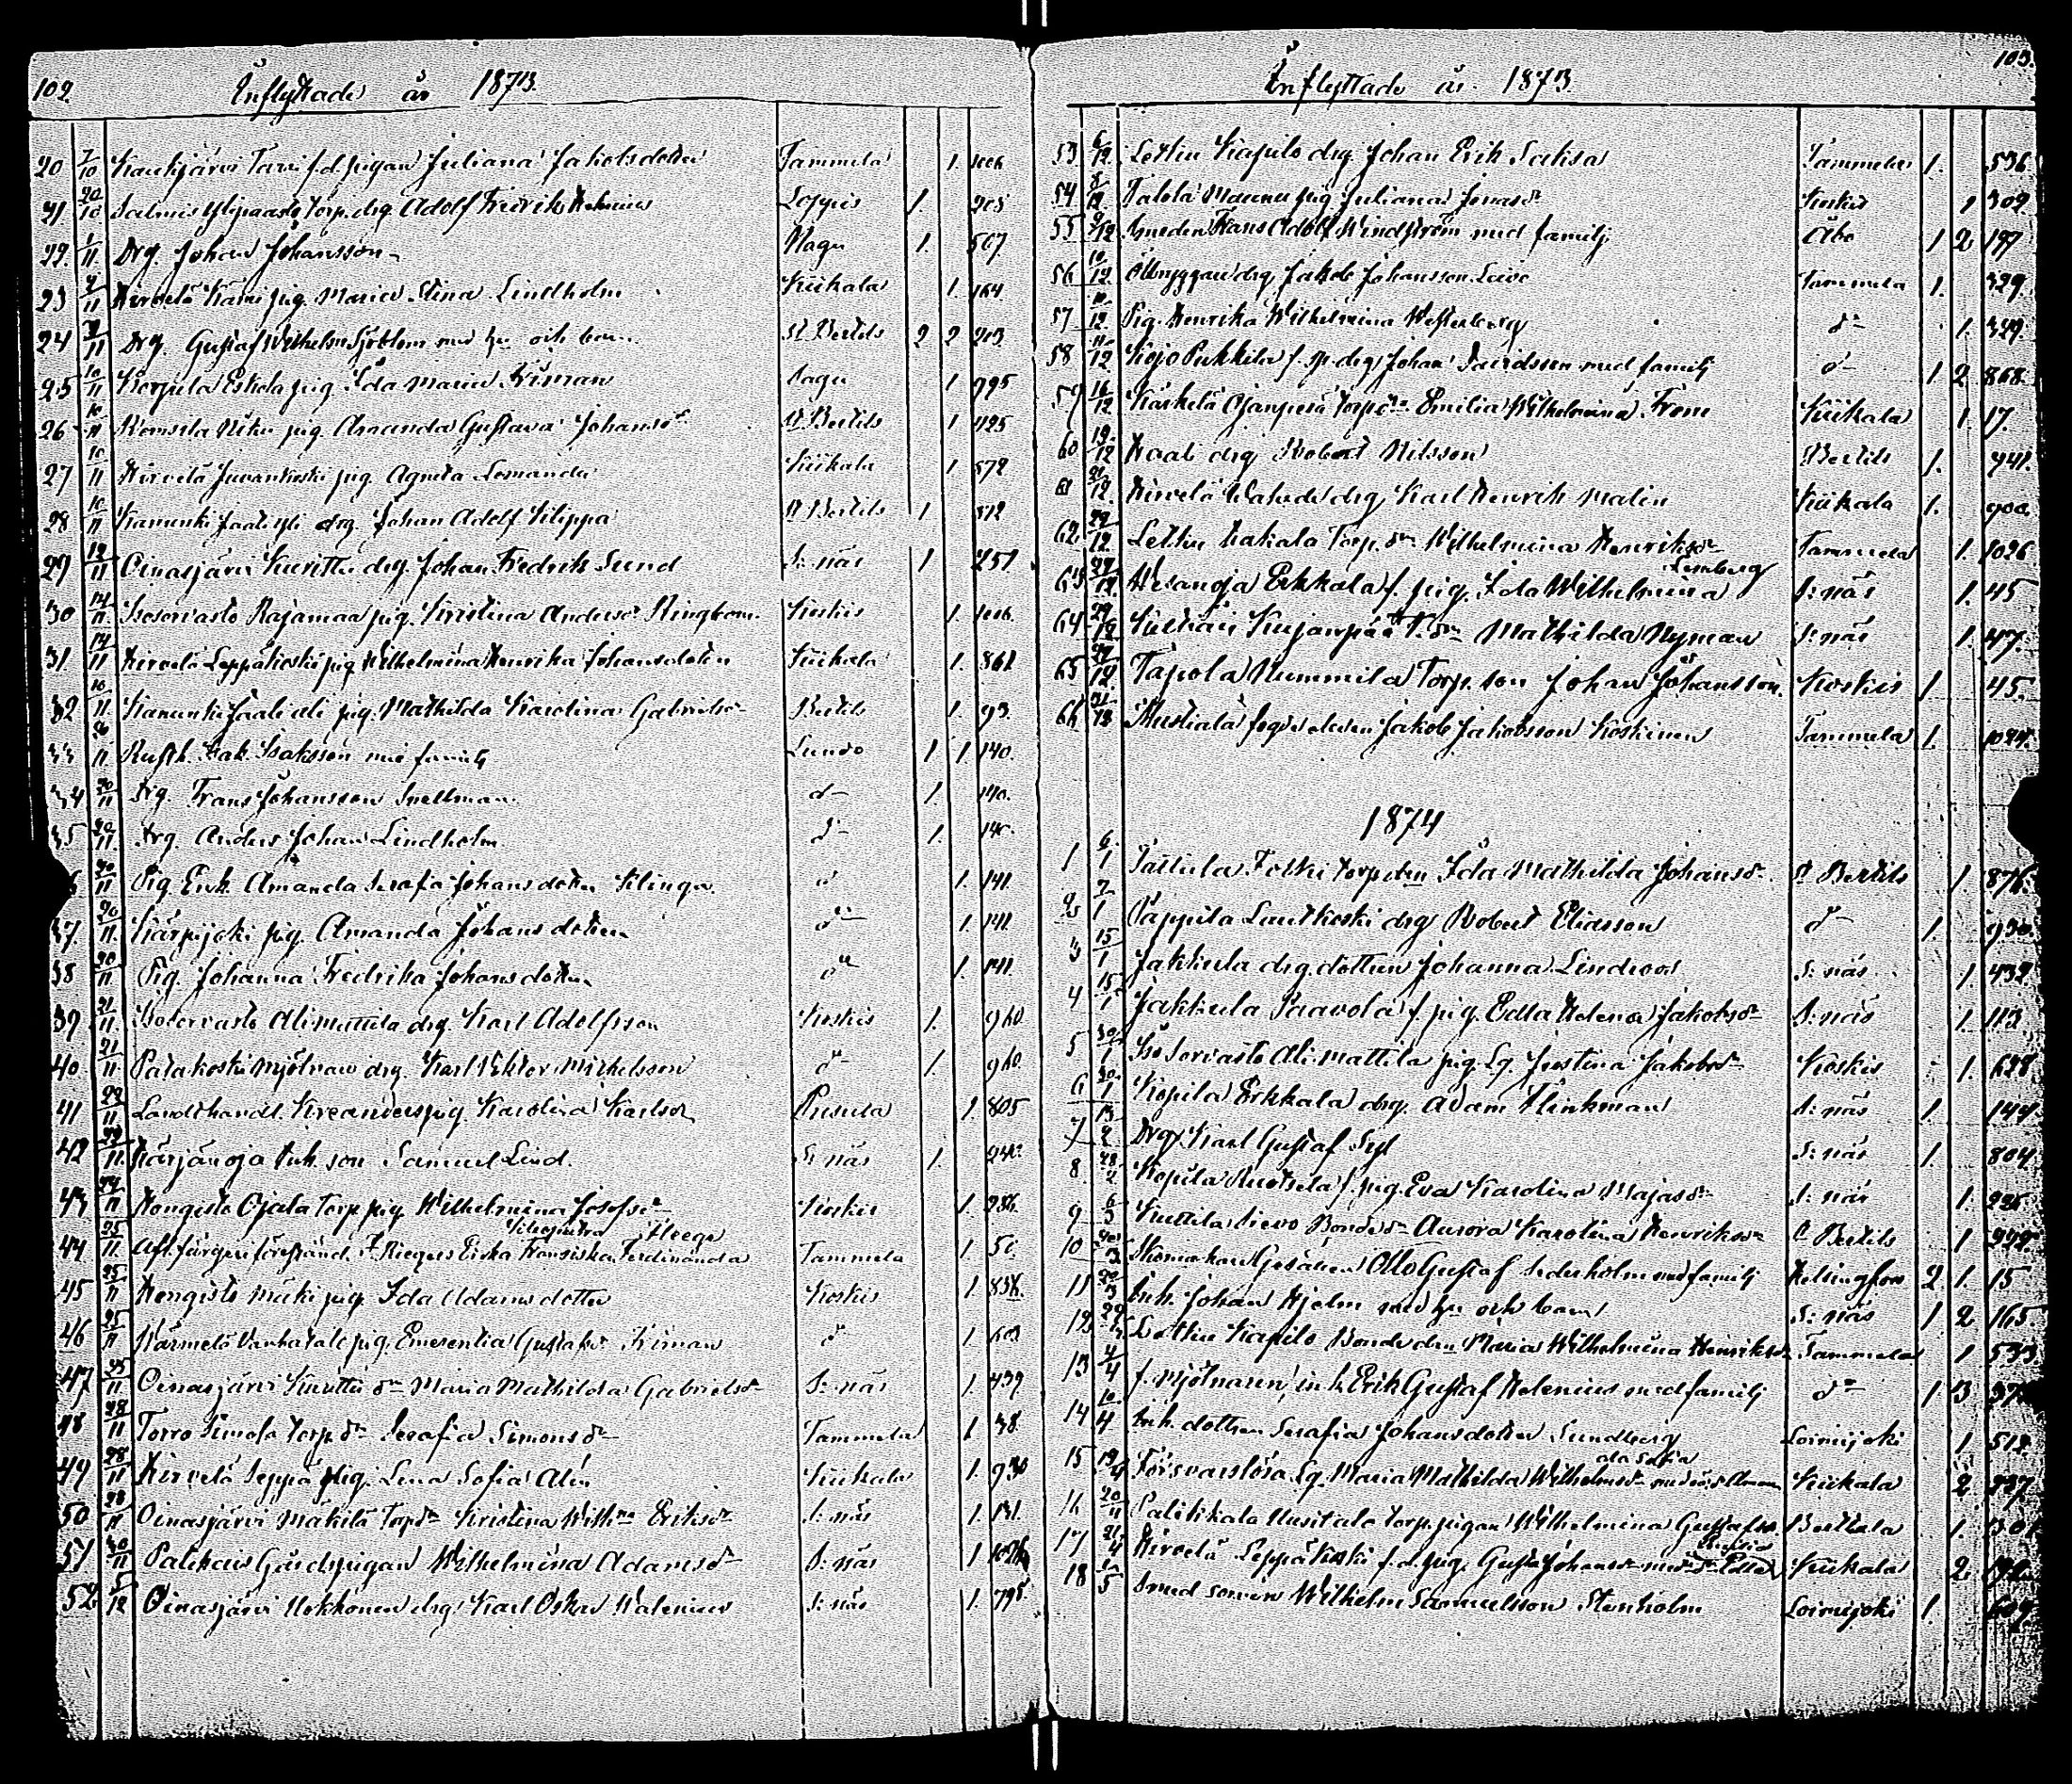 102. Inflyttade år 1873.
20 7/10 Kaukjärvi Tarri f.d. pigan Juliana Jakobsdotter Tammela 1. 1006
21. 20/10 Salmis Ylipaasto torp. drg. Adolf Fredrik Helenius Loppis 1. 205
22. 1/11 Drg. Johan Johansson Nagu 1. 567.
23 7/11 Hirvelä pig. Maria Stina Lindholm Kiikala 1. 164
24 9/11 Drg. Gustaf Wilhelm Sjöblom med hu och barn St Bertils 2 2 203
25 10/11 Korpila Eskola pig. Ida Maria Pagu 1 795
26 10/11 Niku pig. Amanda Gustava Johansdr St Bertils 1 425
27 10/11 Hirvelä Juvankoski pig. Agneta Lomander Kiikala 1 572
28 10/11 Kanunki Jaakyli drg. Johan Adolf Filippa St Bertils 1 512
29 12/11 Oinasjärvi Kuritti drg. Johan Fredrik Sund S:näs 1 251
30 14/11 Isosorvasto Rajamaa pig. Kristina Andersdr Ringbom. Koskis 1. 1016
31. 14/11 Hirvelä Leppäkoski pig. Wilhelmina Henrika Johansdotter Kiikala 1. 861
32 16/11 Kanunki Jaali ali pig. Mathilda Karolina Gabrielsdr Bertils 1. 93.
33 /11 Rusth. Isak Isaksson med familj Lundo 1 1 140.
34 20/11 Drg. Frans Johansson Snellman d- 1. 140.
35 20/11 Drg. Anders Johan Lindholm d- 1. 140.
6 20/11 Pig. Enk. Amanda Serafa Johansdotter Klinga. d 1. 141.
37. 20/11 Kärpijoki pig. Amanda Johansdotter d- 1. 141.
38 20/11 Pig. Johanna Fredrika Johansdotter d- 1. 141.
39 21/11 Isosorvasto Alimattila drg. Karl Adolfsson Koskis 1. 960.
40. 21/11 Patakoski Mjölnare drg. Karl Viktor Mickelsson d- 1. 960.
41 22/11 Landthandl. pig. Karolina Karlsdr Pusula 1. 805
42 /11 Kärjänoja Inh. son Samuel Lind. S:näs 1.
43 24/11 Hongisto Ojala torp. pig. Wilhelmina Josefsdr Koskis 1. 236.
44 25/11 Tammela 1. 50.
45 25/11 Hongisto Mäki pig. Ida Adamsdotter Koskis 1 836.
46 25/11 Wanhatalo pig. Emerentia Gustafsdr d- 1. 603
47 25/11 Oinasjärvi Kuritti dr Maria Mathilda Gabrielsdr S:näs 1. 439
48 28/11 Torro Simola torp. dr Serafia Simonsdr Tammela 1 38.
49 28/11 Hirvelä Seppä pig. Lena Sofia Alin Kiikala 1. 930
50 28/11 Oinasjärvi Mäkilä Torp dr Kristina Wilhna Eriksdr S:näs 1. 131.
51 30/11 Palikais Gårdspigan Wilhelmina Adamsdr S:näs 1
52 5/12 Oinasjärvi Uokkonen drg. Karl Oskar Walenius S:näs 1. 795.
103.
Inflyttade år 1873.
53 6/12 Letku Kapilo drg. Johan Erik Saksa Tammela 1. 536.
54 8/12 Talola Mannu pig. Juliana Jonasdr Koskis 1 302.
55 9/12 Smeden Frans Adolf Windström med familj Åbo 1 2 197
56 10/12 drg. Jakob Johansson Leivo Tammela 1. 329.
57 10/12 Pig. Henrika Wilhelmina Westerberg d- 1. 329.
58 11/12 Kojo Pukkila f. sp. drg. Johan Davidsson med familj d- 1 2. 868.
59 16/12 Kaskelä Ojanperä torp dr Emilia Wilhelmina From Kiikala 1. 17.
60 19/12 Haali drg Robert Nilsson St Bertils 1. 941.
61 21/12 Hirvelä drg Karl Henrik Malin Kiikala 1. 900.
62 22/12 Letku Torp. dr Wilhelmina Henriksdr Tammela 1. 1026
63 22/12 Wesanoja Erkkala f. pig. Ida Wilhelmina Lemberg S:näs 1. 45
64 29/12 Kujanpää T. dr Mathilda Nyman S:näs 1. 47.
65 29/12 Tapola Nummila Torp. son Johan Johansson. Koskis 1 45.
66 31/12 Mustiala Jakob Jakobsson Koskinen Tammela 1.
1874
1 6/1 Pättula torp drn Ida Mathilda Johansdr St Bertils 1. 876.
2 7/1 Pappila Lautkoski drg Robert Eliasson d- 1. 930.
3 15/1 Jakkula drg. dottren Johanna Lindroos S:näs 1. 432.
4 15/1 Jakkula Paavola f. pig. Edla Helena Jakobsdr S:näs 1. 113.
5 30/1 Iso Sorvasto Alimattila pig. Lg. Justina Jakobsdr Koskis 1. 628
6 30/1 Kopila Erkkala drg. Adam Flinkman S:näs 1. 144.
7 13/2 Drg. Karl Gustaf Syl S:näs 1. 804.
8. 28/2 Kopila f. pig. Eva Karolina Majasdr S:näs 1. 225.
9 6/3 Kuttila Sievo Bondedr Aurora Karolina Henriksdr St Bertils 1
10 20/3 Skomakare Gesällen Otto Gustaf Sederholm med familj Helsingfors 2 1. 15
11 20/3 Inh. Johan Hjelm med hu och barn S:näs 1 2 165.
12 Letku Kapilo Bonde drn Maria Wilhelmina Henriksdr Tammela 1 533
13 4/4 f. mjölnaren, inh. Erik Gustaf Helenius med familj d- 1 3
14 10/4 Inh. dottren Serafia Johansdotter Sundberg Loimijoki 1. 512.
15 Försvarslösa Lg. Maria Mathilda Wilhelmsdr Kiikala 2.
16 20/4 Palikkala Uusitalo torp. pigan Wilhelmina Gustafsdr 1.
17 21/4 Hirvelä Leppäkoski f. d. pig. Gusta Johansdr med dr Edla Kiikala 2.
18 1/5 Smed sonen Wilhelm Samuelsson Stenholm Loimijoki 1. 609.